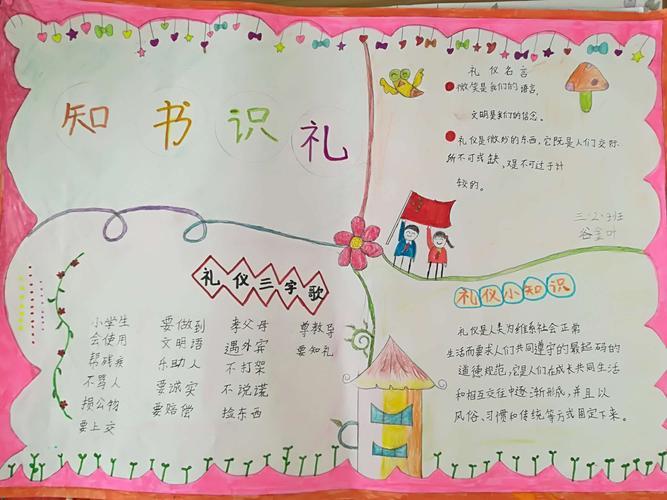 知书识礼
礼仪名言
微笑是我们的语言,
文明是我们的信念。
礼仪是微妙的东西,它既是人们交际
所不可或缺,是不可过于计
较的。
三·2·班
谷金叶
礼仪三字歌
小学生 要做到 孝父母 尊教导
会使用 文明语 遇外宾 要知礼
帮残疾 乐助人 不打架
不骂人 要诚实 不说谎
损公物 要赔偿 捡东西
要上交
礼仪小知识
礼仪是人类为维系社会正常
生活而要求人们共同遵守的最起码的
道德规范,它是人们在成长共同生活
和相互交往中逐渐形成,并且以
风俗、习惯和传统等方式固定下来。